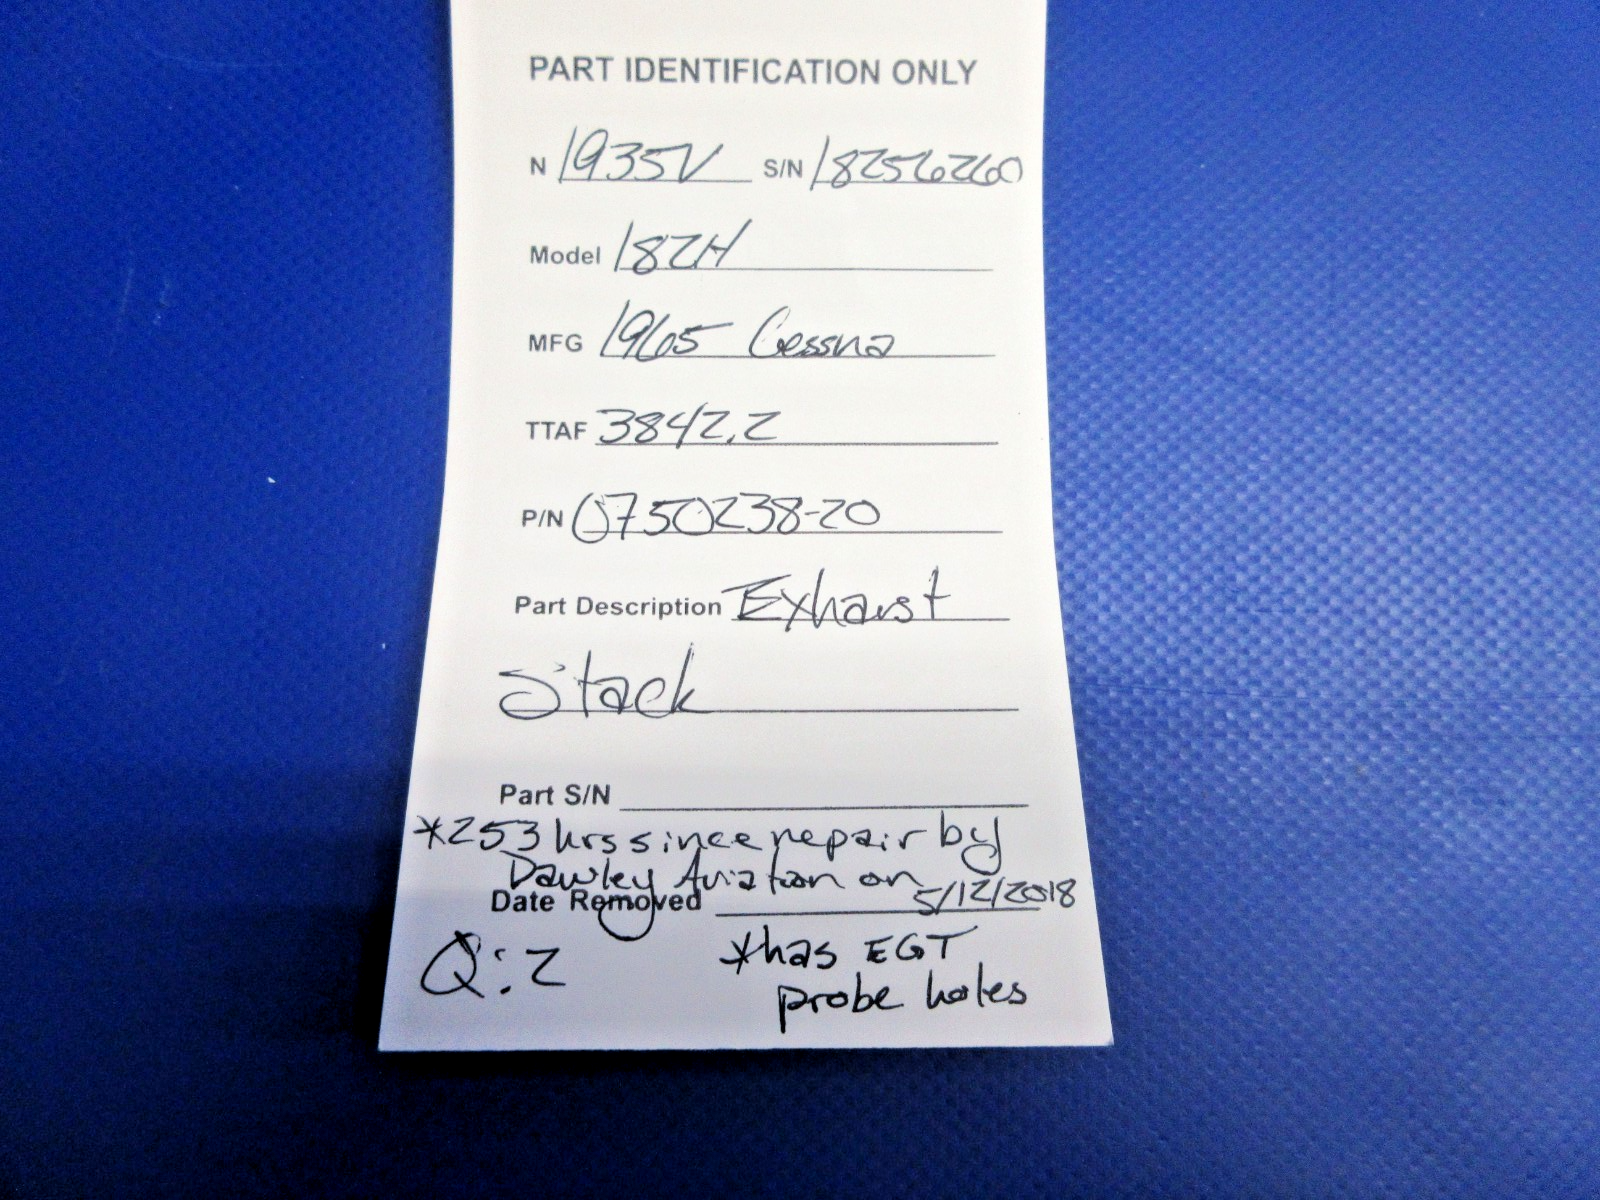 PART IDENTIFICATION ONLY
N 1935V S/N 18256260
Model 182H
MFG 1965 Cessna
TTAF 3842.2
P/N 0750238-20
Part Description Exhaust
Stack
Part S/N
*253 hrs since repair by
Dawley Aviation on 5/12/2018
Date Removed
Q:2 *has EGT
probe holes